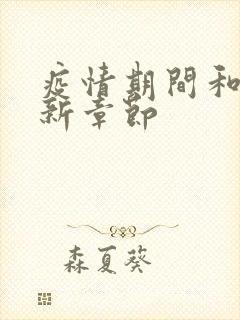 疫情期間和
新章節
森夏葵